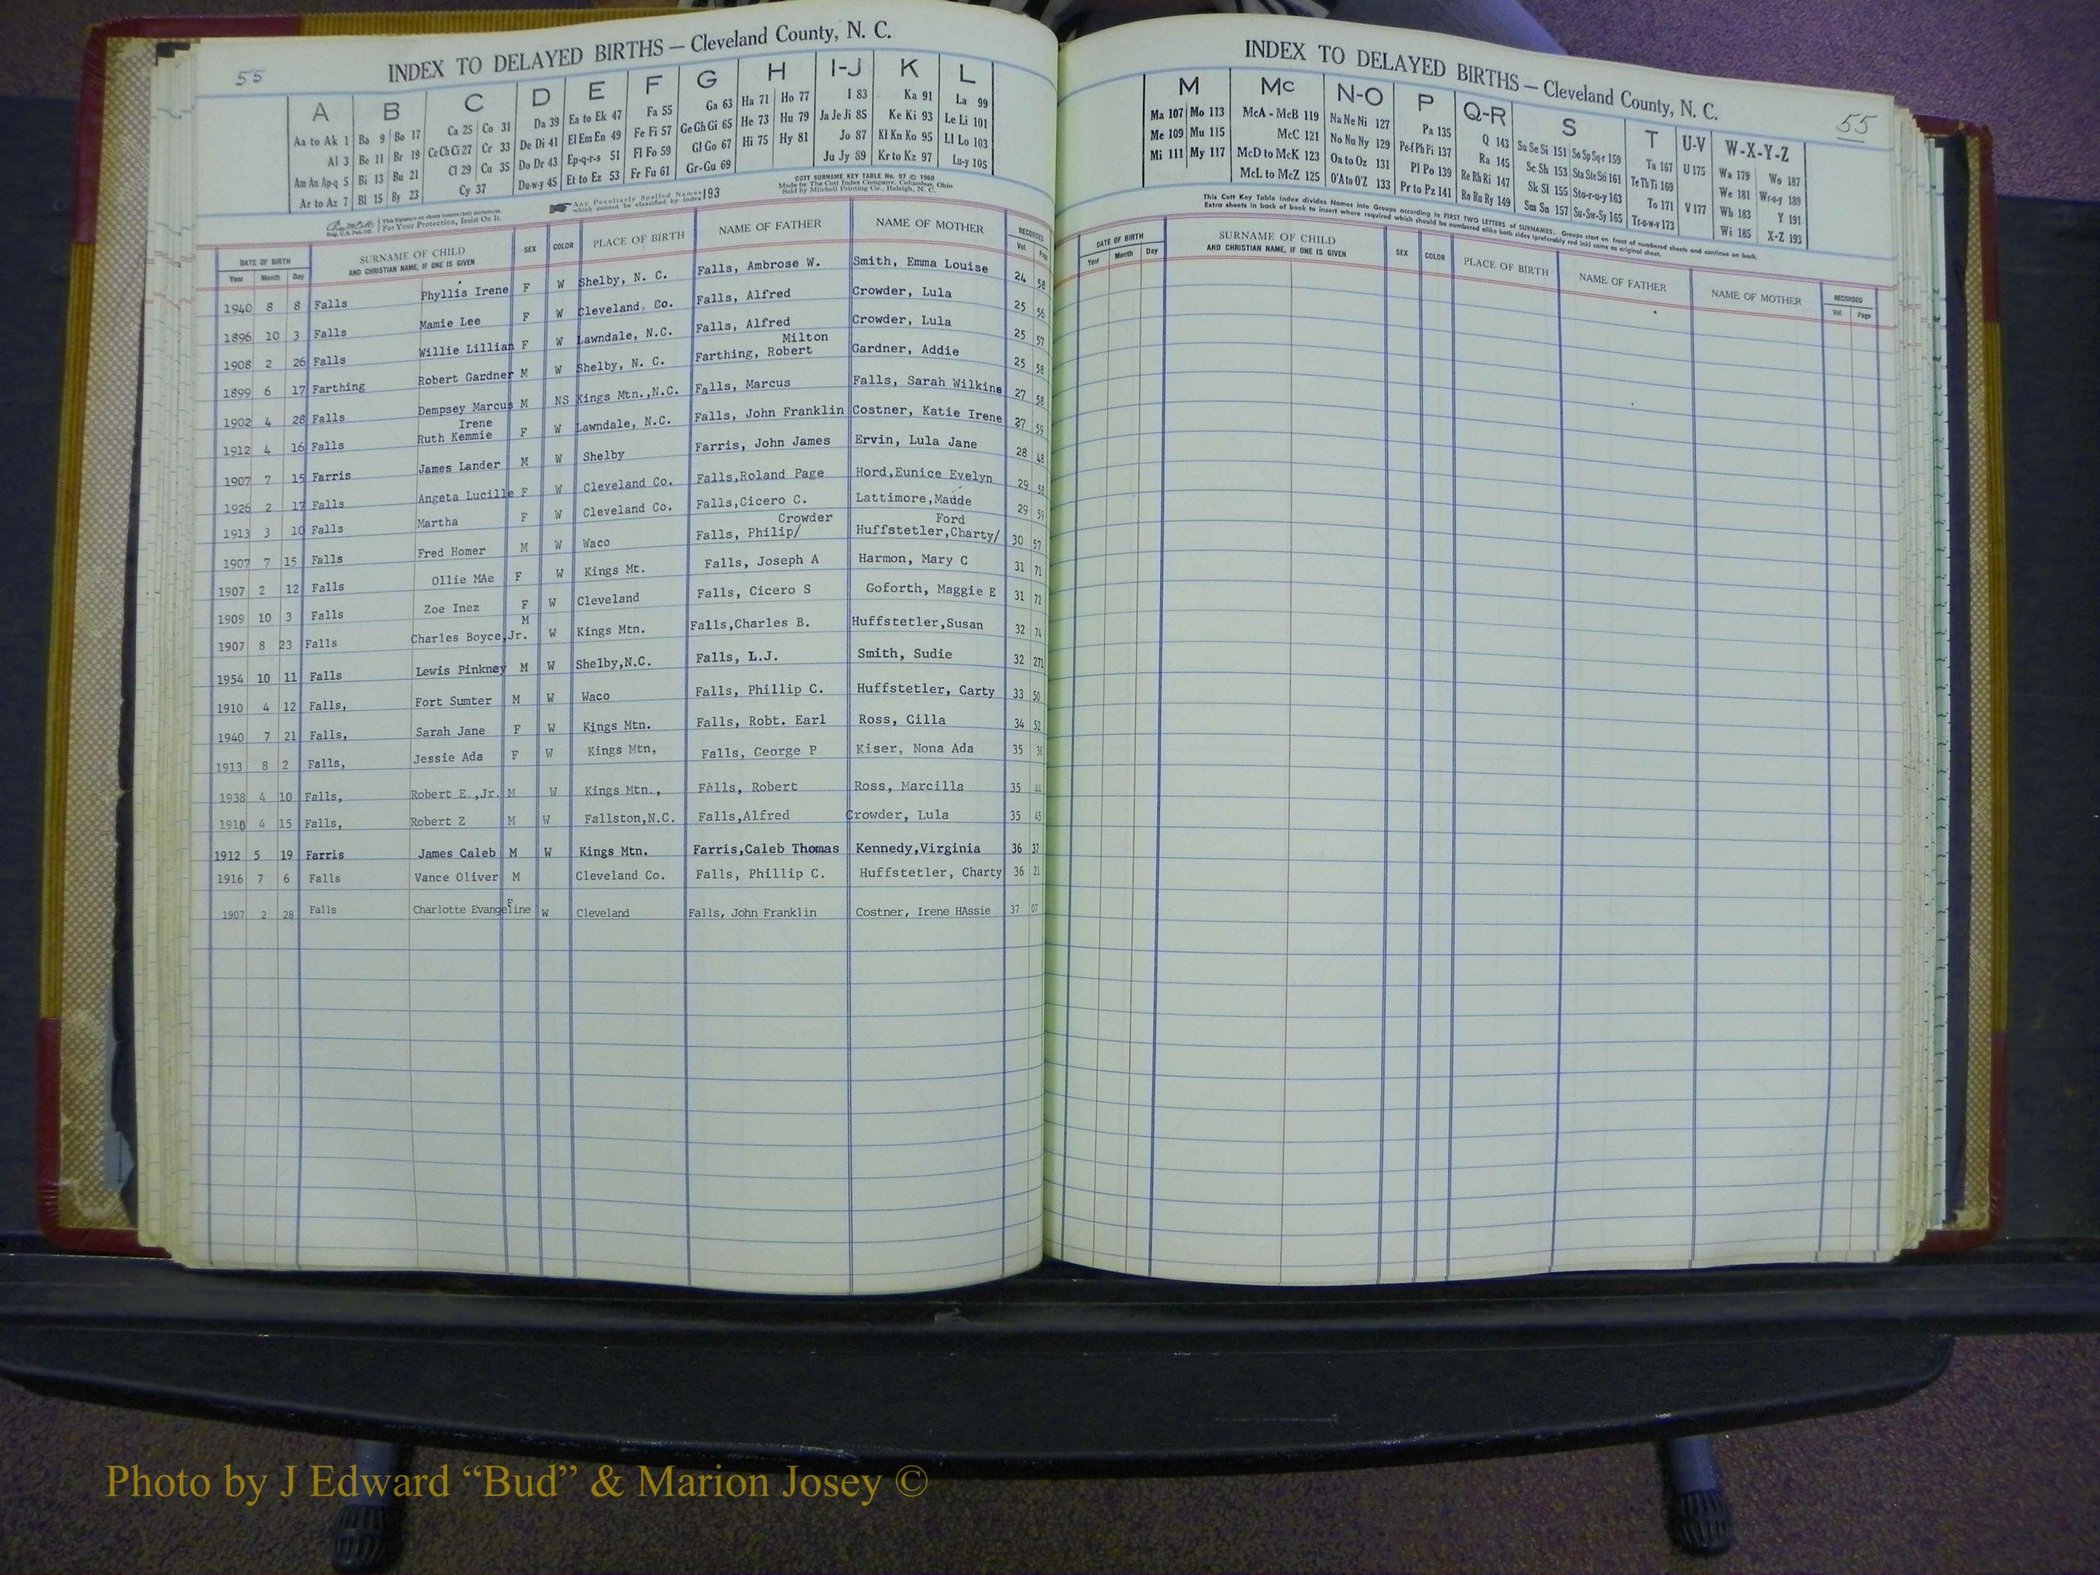 55
INDEX TO DELAYED BIRTHS — Cleveland County, N. C.
A B C D E F G H I-J K L
Aa to Ak 1 Ba 9 Bo 17 Ca 25 Co 31 Da 39 Ea to Ek 47 Fa 55 Ga 63 Ha 71 Ho 77 I 83 Ka 91 La 99
Al 3 Be 11 Br 19 Ce Ch Ci 27 Cr 33 De Di 41 El Em En 49 Fe Fi 57 Ge Gh Gi 65 He 73 Hu 79 Ja Je Ji 85 Ke Ki 93 Le Li 101
Am An Ap-q 5 Bi 13 Bu 21 Cl 29 Cu 35 Do Dr 43 Ep-q-r-s 51 Fl Fo 59 Gl Go 67 Hi 75 Hy 81 Jo 87 Kl Kn Ko 95 Ll Lo 103
Ar to Az 7 Bl 15 By 23 Cy 37 Du-w-y 45 Et to Ez 53 Fr Fu 61 Gr-Gu 69 Ju Jy 89 Kr to Kz 97 Lu-y 105
For Your Protection, Insist On It.
Any Peculiarly Spelled Names which cannot be classified by Index 193
COTT SURNAME KEY TABLE No. 97 © 1960
Made by The Cott Index Company, Columbus, Ohio
Sold by Mitchell Printing Co., Raleigh, N. C.
DATE OF BIRTH SURNAME OF CHILD SEX COLOR PLACE OF BIRTH NAME OF FATHER NAME OF MOTHER RECORDED
Year Month Day AND CHRISTIAN NAME, IF ONE IS GIVEN Vol. Page
1940 8 8 Falls Phyllis Irene F W Shelby, N. C. Falls, Ambrose W. Smith, Emma Louise 24 58
1896 10 3 Falls Mamie Lee F W Cleveland. Co. Falls, Alfred Crowder, Lula 25 56
1908 2 26 Falls Willie Lillian F W Lawndale, N.C. Falls, Alfred Crowder, Lula 25 57
Milton
1899 6 17 Farthing Robert Gardner M W Shelby, N. C. Farthing, Robert Gardner, Addie 25 58
1902 4 28 Falls Dempsey Marcus M NS Kings Mtn.,N.C. Falls, Marcus Falls, Sarah Wilkins 27 58
Irene
1912 4 16 Falls Ruth Kemmie F W Lawndale, N.C. Falls, John Franklin Costner, Katie Irene 27 59
1907 7 15 Farris James Lander M W Shelby Farris, John James Ervin, Lula Jane 28 48
1926 2 17 Falls Angeta Lucille F W Cleveland Co. Falls,Roland Page Hord,Eunice Evelyn 29 58
1913 3 10 Falls Martha F W Cleveland Co. Falls,Cicero C. Lattimore,Maude 29 59
Crowder Ford
1907 7 15 Falls Fred Homer M W Waco Falls, Philip/ Huffstetler,Charty/ 30 57
1907 2 12 Falls Ollie MAe F W Kings Mt. Falls, Joseph A Harmon, Mary C 31 71
1909 10 3 Falls Zoe Inez F W Cleveland Falls, Cicero S Goforth, Maggie E 31 72
1907 8 23 Falls Charles Boyce,Jr. M W Kings Mtn. Falls,Charles B. Huffstetler,Susan 32 74
1954 10 11 Falls Lewis Pinkney M W Shelby,N.C. Falls, L.J. Smith, Sudie 32 271
1910 4 12 Falls, Fort Sumter M W Waco Falls, Phillip C. Huffstetler, Carty 33 50
1940 7 21 Falls, Sarah Jane F W Kings Mtn. Falls, Robt. Earl Ross, Cilla 34 52
1913 8 2 Falls, Jessie Ada F W Kings Mtn, Falls, George P Kiser, Nona Ada 35
1938 4 10 Falls, Robert E.,Jr. M W Kings Mtn., Falls, Robert Ross, Marcilla 35 44
1910 4 15 Falls, Robert Z M W Fallston,N.C. Falls,Alfred Crowder, Lula 35 45
1912 5 19 Farris James Caleb M W Kings Mtn. Farris,Caleb Thomas Kennedy,Virginia 36 37
1916 7 6 Falls Vance Oliver M Cleveland Co. Falls, Phillip C. Huffstetler, Charty 36 21
1907 2 28 Falls Charlotte Evangeline F W Cleveland Falls, John Franklin Costner, Irene HAssie 37 07
INDEX TO DELAYED BIRTHS — Cleveland County, N. C.
55
M Mc N-O P Q-R S T U-V W-X-Y-Z
Ma 107 Mo 113 McA - McB 119 Na Ne Ni 127 Pa 135 Q 143 Sa Se Si 151 So Sp Sq-r 159 Ta 167 U 175 Wa 179 Wo 187
Me 109 Mu 115 McC 121 No Nu Ny 129 Pe-f Ph Pi 137 Ra 145 Sc Sh 153 Sta Ste Sti 161 Te Th Ti 169 We 181 Wr-u-y 189
Mi 111 My 117 McD to McK 123 Oa to Oz 131 Pl Po 139 Re Rh Ri 147 Sk Sl 155 Sto-r-u-y 163 To 171 V 177 Wh 183 Y 191
McL to McZ 125 O'A to O'Z 133 Pr to Pz 141 Ro Ru Ry 149 Sm Sn 157 Su-Sw-Sy 165 Tr-u-w-y 173 Wi 185 X-Z 193
This Cott Key Table Index divides Names into Groups according to FIRST TWO LETTERS of SURNAMES. Groups start on front of numbered sheets and continue on back.
Extra sheets in back of book to insert where required which should be numbered alike both sides (preferably red ink) same as original sheet.
DATE OF BIRTH SURNAME OF CHILD SEX COLOR PLACE OF BIRTH NAME OF FATHER NAME OF MOTHER RECORDED
Year Month Day AND CHRISTIAN NAME, IF ONE IS GIVEN Vol. Page
Photo by J Edward “Bud” & Marion Josey ©